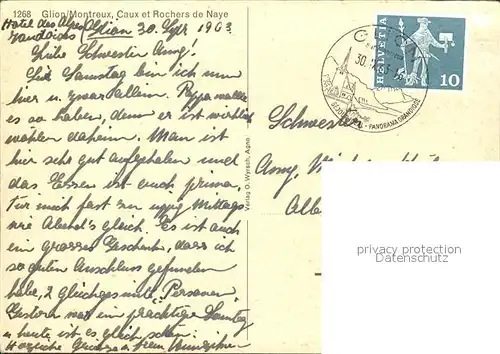 1268 Glion/Montreux, Caux et Rochers de Naye
Hotel des Alpes Glion 30. Sept 1963
Vaudoises
Liebe Schwester Anny!
Seit Samstag bin ich nun
hier u. zwar allein. Pappa wollte
es so haben, denn er ist wirklich
wohler daheim. Man ist
hier sehr gut aufgehoben und
das Essen ist auch prima,
für mich fast zu üppig Mittags
wie Abend's gleich. Es ist auch
ein grosses Geschenk, dass ich
so guten Anschluss gefunden
habe, 2 gleichgesinnte Personen
Gestern war ein prächtiger Sonntag
u. heute ist es gleich schön.
Herzliche Grüsse
Verlag O. Wyrsch, Agno
GLION
30.
PANORAMA GRANDIOSE
HELVETIA
10
Schwester
Anny
privacy protection
Datenschutz